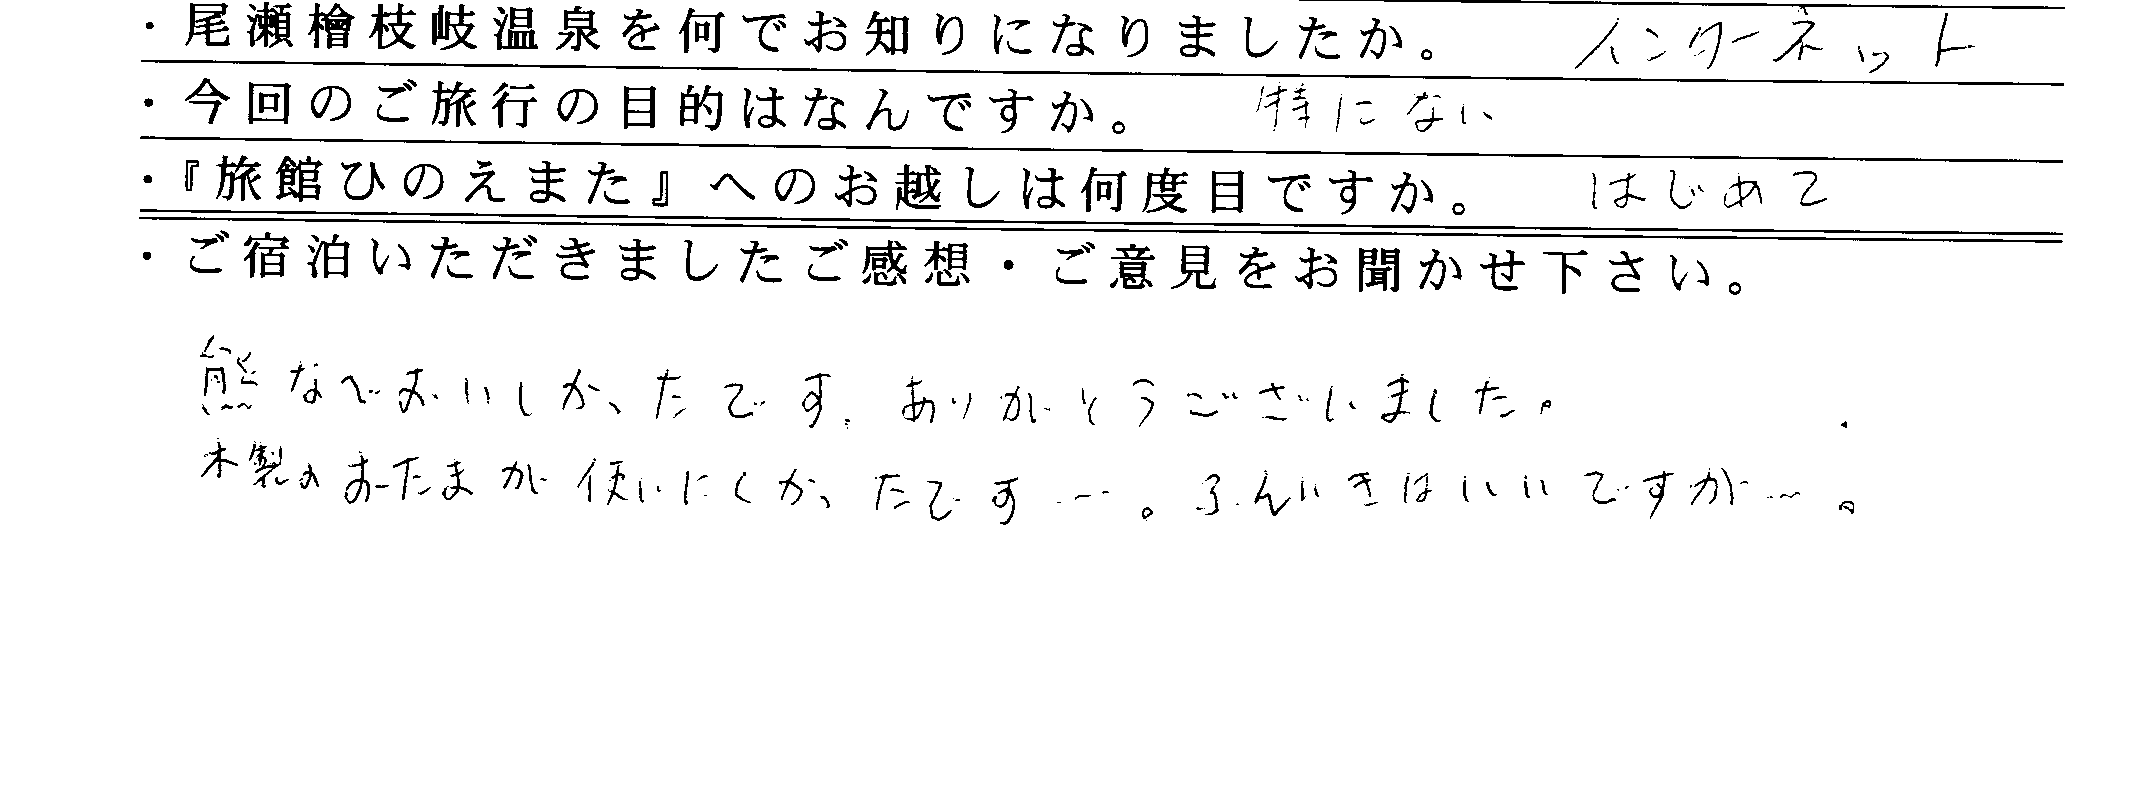 ・尾瀬檜枝岐温泉を何でお知りになりましたか。 インターネット
・今回のご旅行の目的はなんですか。 特にない
・『旅館ひのえまた』へのお越しは何度目ですか。 はじめて
・ご宿泊いただきましたご感想・ご意見をお聞かせ下さい。
熊なべおいしかったです。ありがとうございました。
木製のおたまが使いにくかったです…。ふんいきはいいですが…。